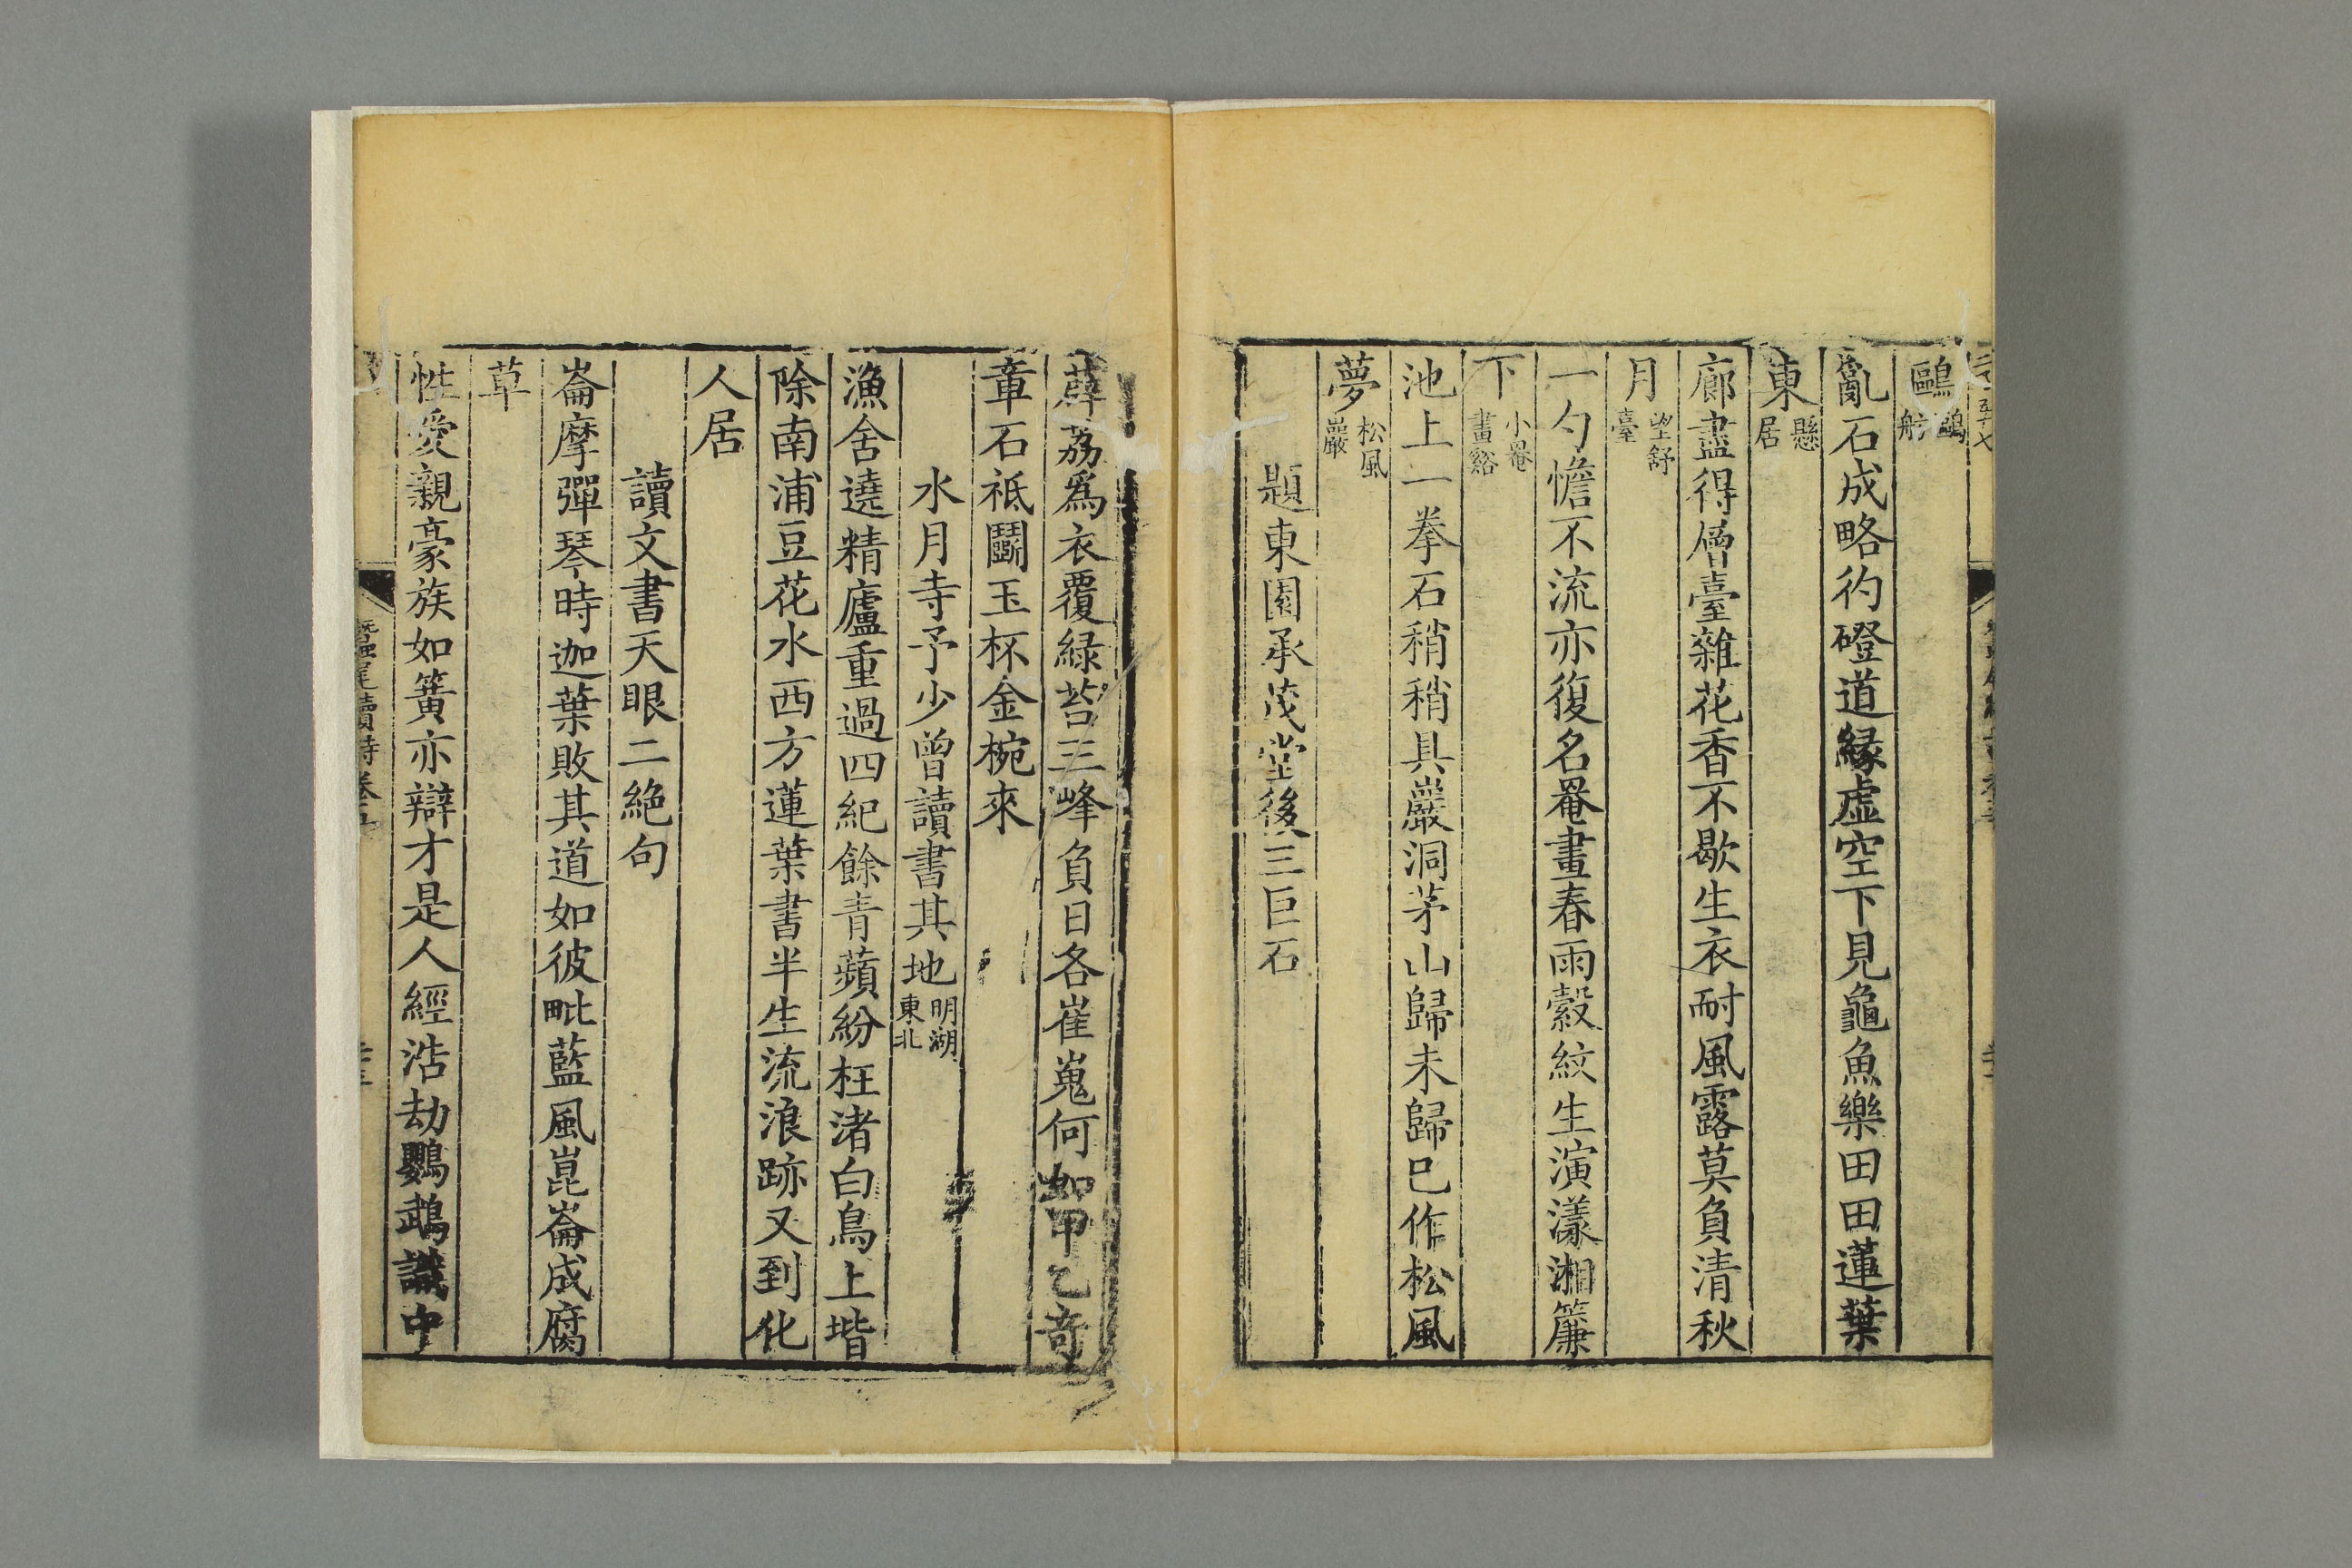 鷗鷗舫
亂石成略彴磴道緣虛空下見龜魚樂田田蓮葉
東懸居
廊盡得層臺雜花香不歇生衣耐風露莫負清秋
月望舒臺
一勺憺不流亦復名罨畫春雨縠紋生演漾湘簾
下小罨畫谿
池上一拳石稍稍具巖洞茅山歸未歸已作松風
夢松風巖
題東園承茂堂後三巨石
薜荔爲衣覆綠苔三峰負日各崔嵬何如甲乙奇
章石祗鬭玉杯金椀來
水月寺予少曾讀書其地明湖東北
漁舍遶精廬重過四紀餘青蘋紛枉渚白鳥上堦
除南浦豆花水西方蓮葉書半生流浪跡又到化
人居
讀文書天眼二絶句
崙摩彈琴時迦葉敗其道如彼毗藍風崑崙成腐
草
性愛親豪族如簧亦辯才是人經浩劫鸚鵡讖中
蠶尾續詩卷